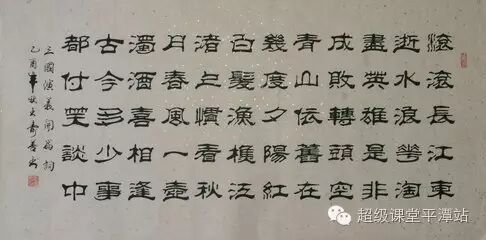 滾滾長江東
逝水浪花淘
盡英雄是非
成敗轉頭空
青山依舊在
幾度夕陽紅
白髮漁樵江
渚上慣看秋
月春風一壺
濁酒喜相逢
古今多少事
都付笑談中
三國演義開篇詞
乙酉年秋
超级课堂平潭站